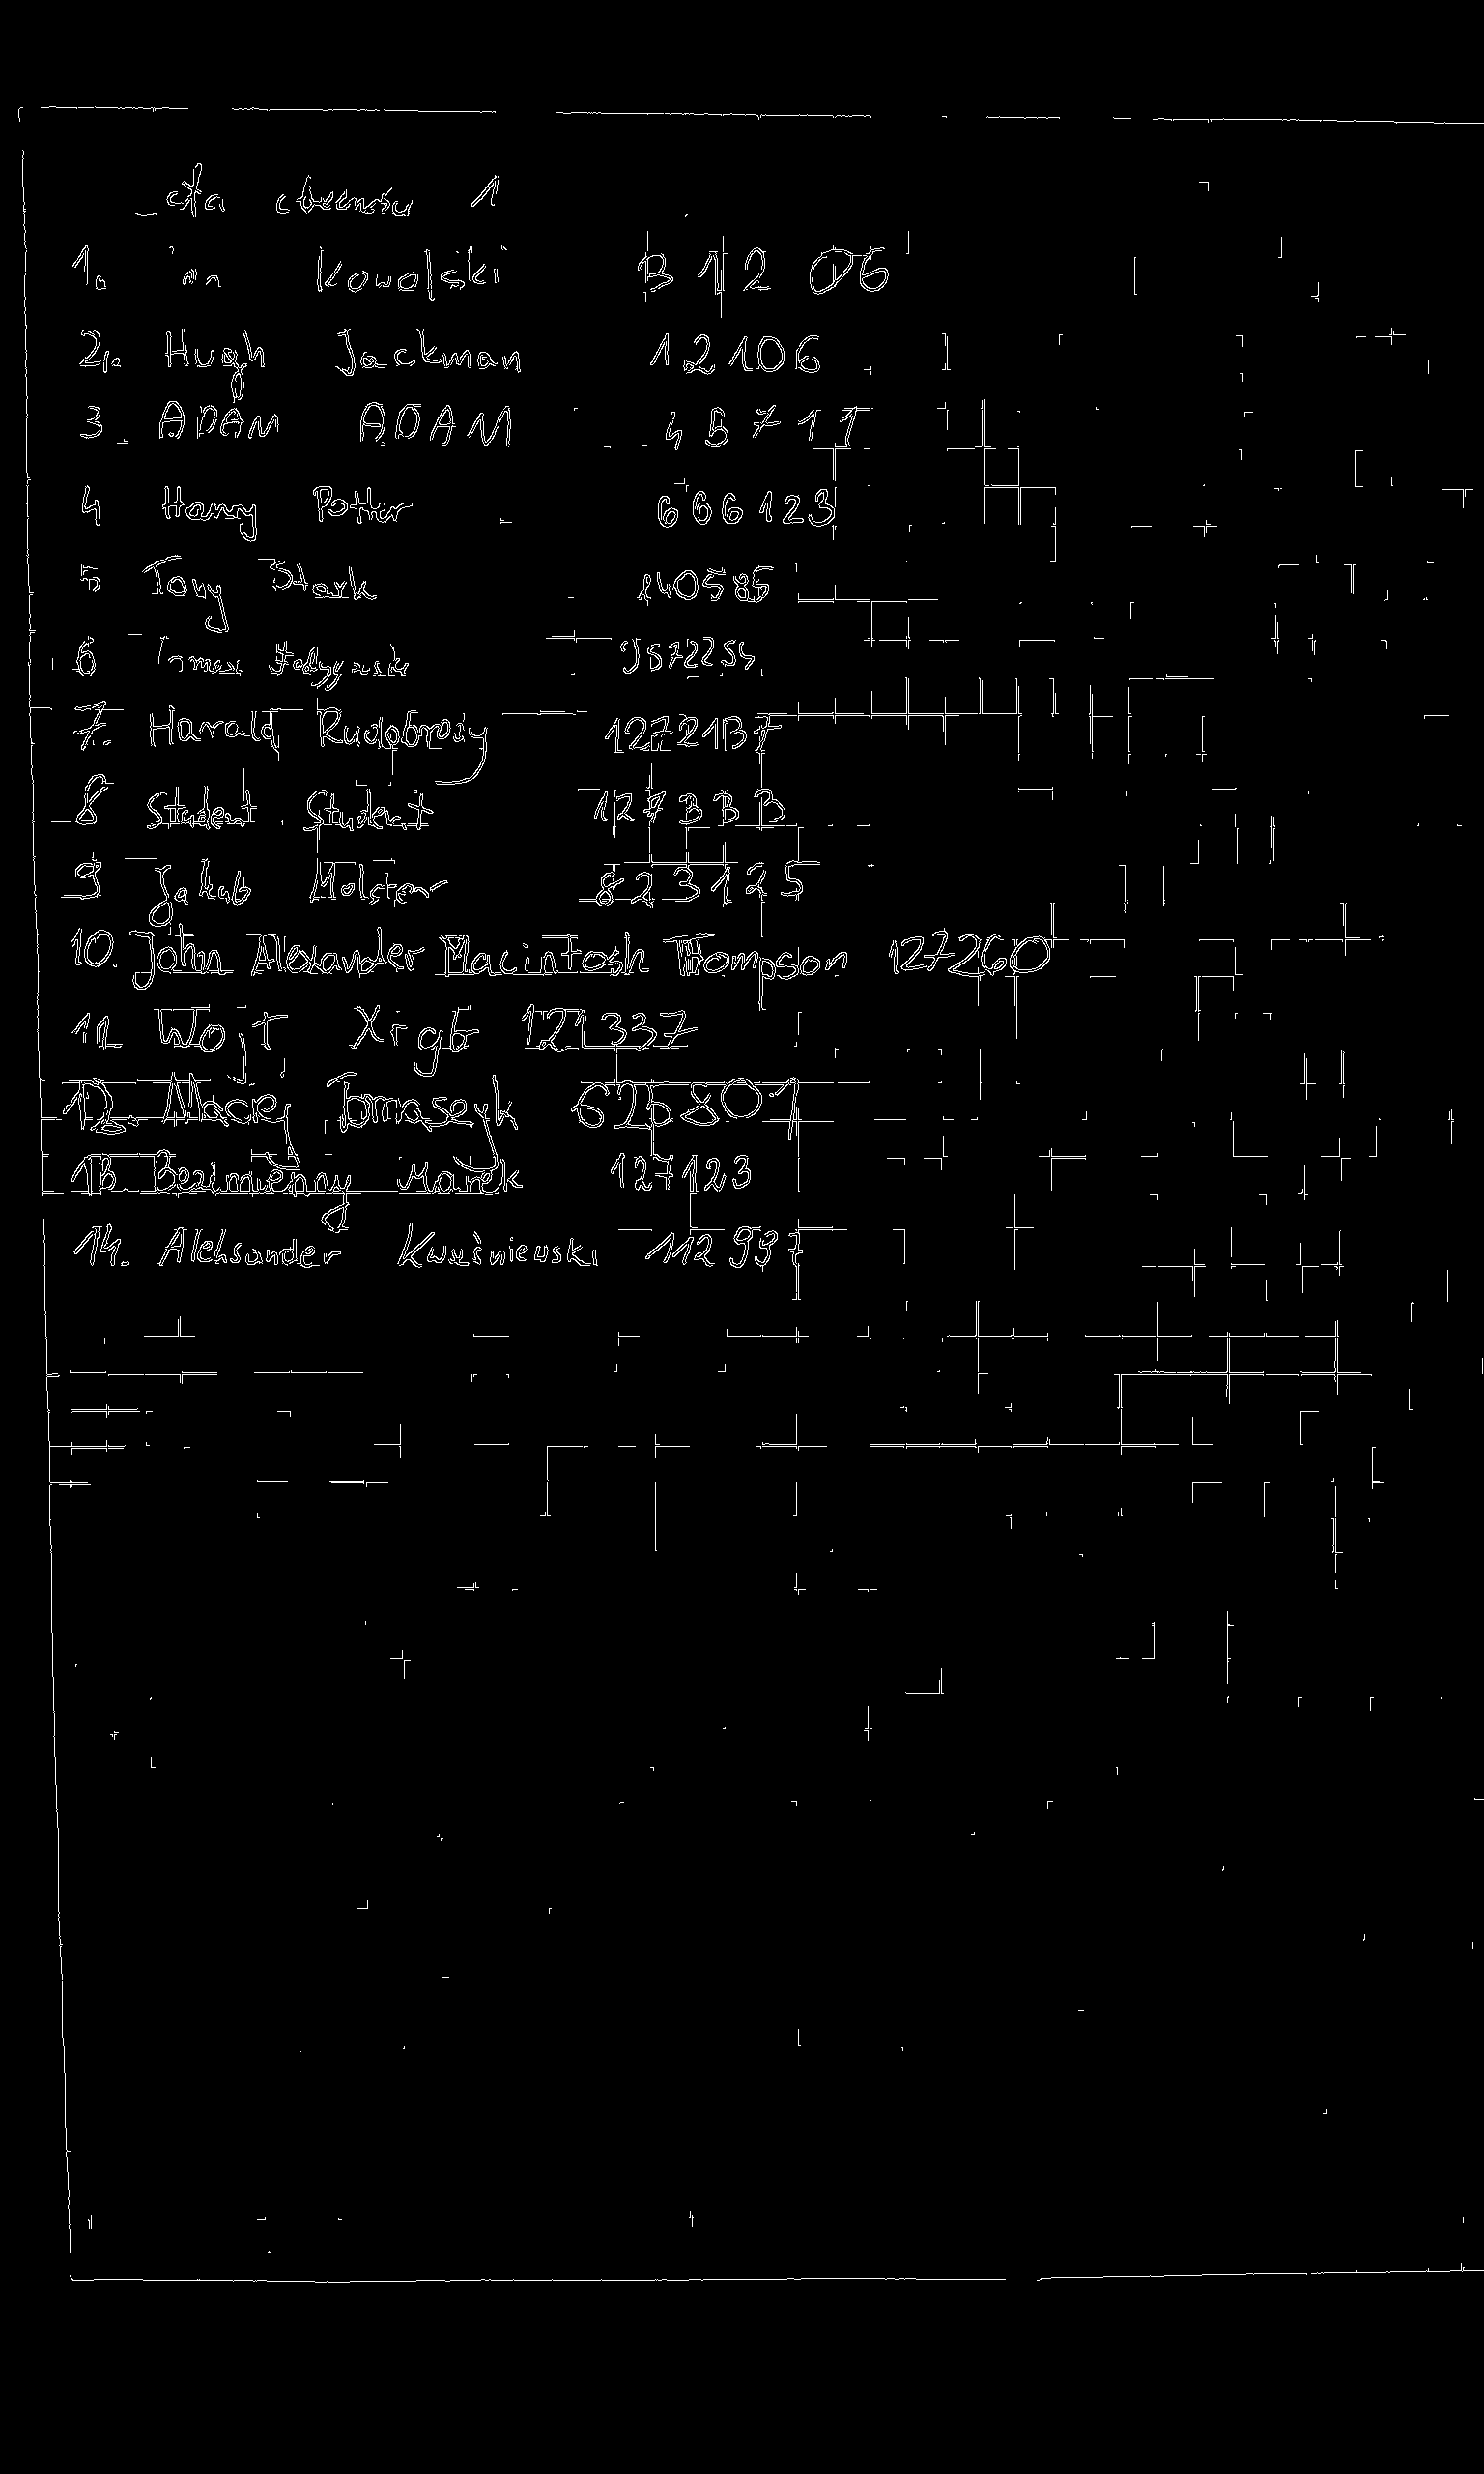 1
1. Kowalski B 12 06
2. Hugh Jackman 12106
3. ADAM ADAM 4B711
4 Harry Potter 666123
5 Tony Stark 140585
6
7. Harald Rudobrody 1272137
8 Student Student 127BBB
9 Jakub Molster 823125
10. John Alexander Macintosh Thompson 127260
11 Wojt Xrgb 121337
12. Maciej Tomaszyk 626801
13. Bezimienny Marek 127123
14. Aleksander Kwaśniewski 112997